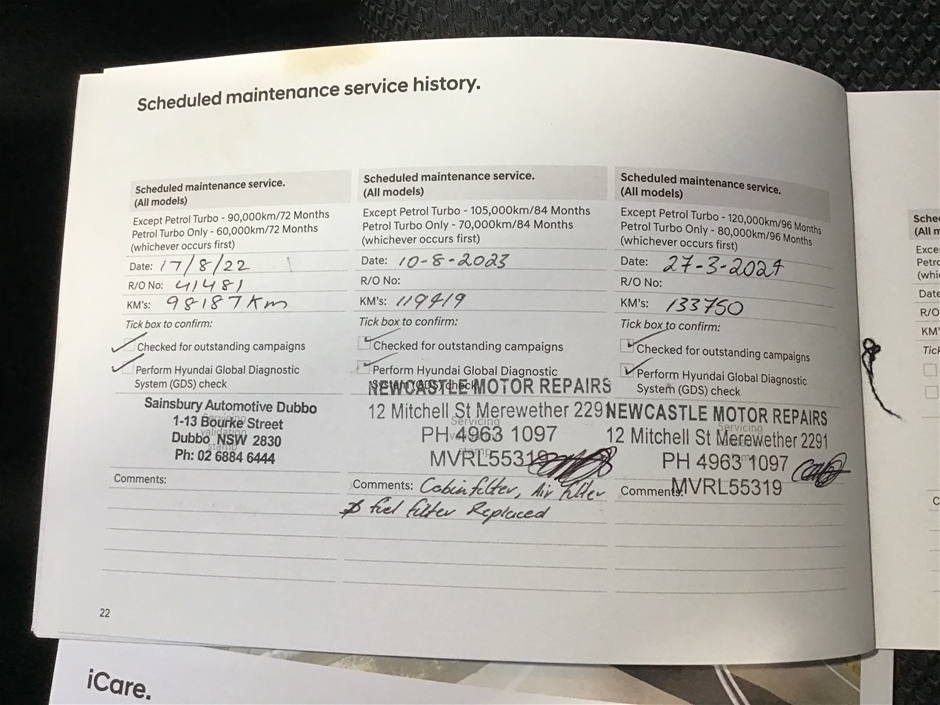 Scheduled maintenance service history.
Scheduled maintenance service.
(All models)
Except Petrol Turbo - 90,000km/72 Months
Petrol Turbo Only - 60,000km/72 Months
(whichever occurs first)
Date: 17/8/22
R/O No: 41481
KM's: 98187Km
Tick box to confirm:
Checked for outstanding campaigns
Perform Hyundai Global Diagnostic
System (GDS) check
Sainsbury Automotive Dubbo
1-13 Bourke Street
Dubbo NSW 2830
Ph: 02 6884 6444
Comments:
Scheduled maintenance service.
(All models)
Except Petrol Turbo - 105,000km/84 Months
Petrol Turbo Only - 70,000km/84 Months
(whichever occurs first)
Date: 10-8-2023
R/O No:
KM's: 119419
Tick box to confirm:
Checked for outstanding campaigns
Perform Hyundai Global Diagnostic
System (GDS) check
NEWCASTLE MOTOR REPAIRS
12 Mitchell St Merewether 2291
Servicing
PH 4963 1097
MVRL55319
Comments: Cabin filter, Air filter
& fuel filter Replaced
Scheduled maintenance service.
(All models)
Except Petrol Turbo - 120,000km/96 Months
Petrol Turbo Only - 80,000km/96 Months
(whichever occurs first)
Date: 27-3-2024
R/O No:
KM's: 133750
Tick box to confirm:
Checked for outstanding campaigns
Perform Hyundai Global Diagnostic
System (GDS) check
NEWCASTLE MOTOR REPAIRS
Servicing
12 Mitchell St Merewether 2291
PH 4963 1097
MVRL55319
Comments:
22
iCare.